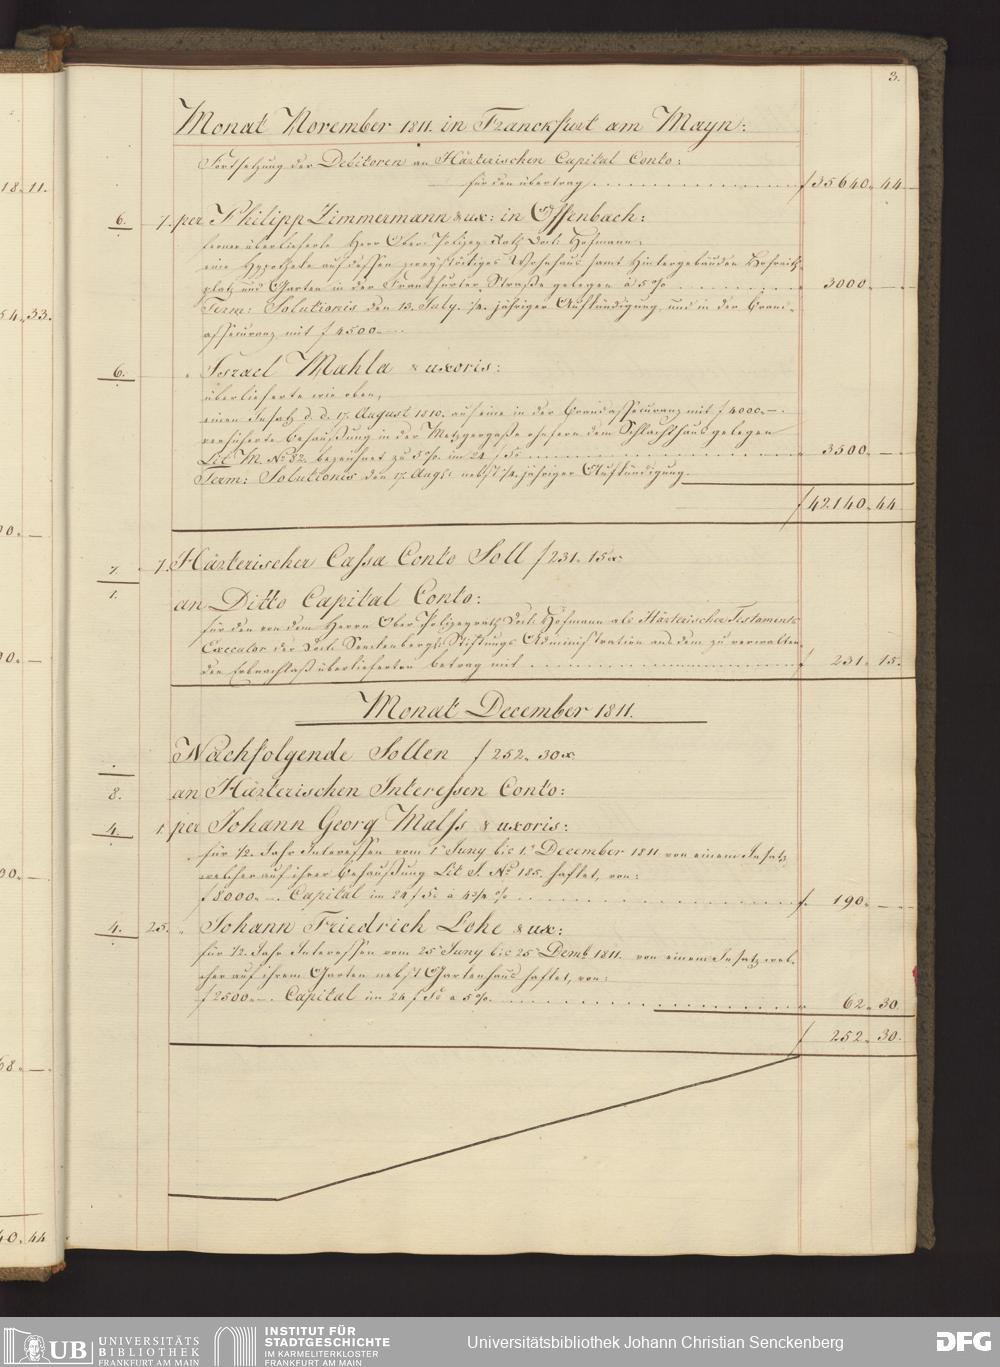 3.
Monat November 1811. in Franckfurt am Mayn:
Fortsetzung der Debitoren an Häxterischen Capital Conto:
für den übertrag f 35640. 44
6. 7. per Philipp Zimmermann & ux: in Offenbach:
ferner überlieferte Herr Ober-Polizey-Rath Doct: Hofmann,
eine Hypotheke auf dessen zweystöckiges Wohnhaus samt Hintergebäuden Hofreith-
platz und Garten in der Frankfurter Straße gelegen à 5 % 3000. —
Term: Solutionis den 13. July. 1/4. jähriger Aufkündigung und in der Brand-
assecuranz mit f 4500. —
6. Israel Mahla & uxoris:
überlieferte wie oben,
einen Insatz d. d. 17. August 1810. auf eine in der Brandassecuranz mit f 4000. —
versicherte Behaußung in der Metzgergaße ohnfern dem Schlachthaus gelegen
Lit. M. No. 82. bezeichnet zu 5 %. im 24 f Fs 3500. —
Term: Solutionis den 17. Augs: nebst 1/4. jähriger Aufkündigung.
f 42.140. 44
7. 7. Häxterischer Cassa Conto Soll f 231. 15 x
1. an Ditto Capital Conto:
für den von dem Herrn Ober Polizeyrath Doct: Hofmann als Häxterischer Testaments
Executor der Doct: Senckenbergs: Stiftungs Administration aus dem zu verwalten-
den Erbnachlaß überlieferten betrag mit f 231. 15.
Monat December 1811.
Nachfolgende Sollen f 252. 30 x
8. an Häxterischen Interessen Conto:
4. 1. per Johann Georg Malss & uxoris:
für 1/2. Jahr Interessen vom 1. Juny bis 1. December 1811 von einem Insatz
welcher auf ihrer Behaußung Lit J. No 185. haftet, von:
f 8000. —. Capital im 24 f Fs à 4 3/4 % f. 190. —
4. 25. Johann Friedrich Lohe & ux:
für 1/2. Jahr Interessen vom 25 Juny bis 25 Demb 1811. von einem Insatz wel-
cher auf ihrem Garten nebst Gartenhaus haftet, von:
f 2500. —. Capital im 24 f Fs a 5 %. 62. 30.
f 252. 30.
18. 11.
54. 33.
40. 44
UB UNIVERSITÄTS
BIBLIOTHEK
FRANKFURT AM MAIN
INSTITUT FÜR
STADTGESCHICHTE
IM KARMELITERKLOSTER
FRANKFURT AM MAIN
Universitätsbibliothek Johann Christian Senckenberg
DFG